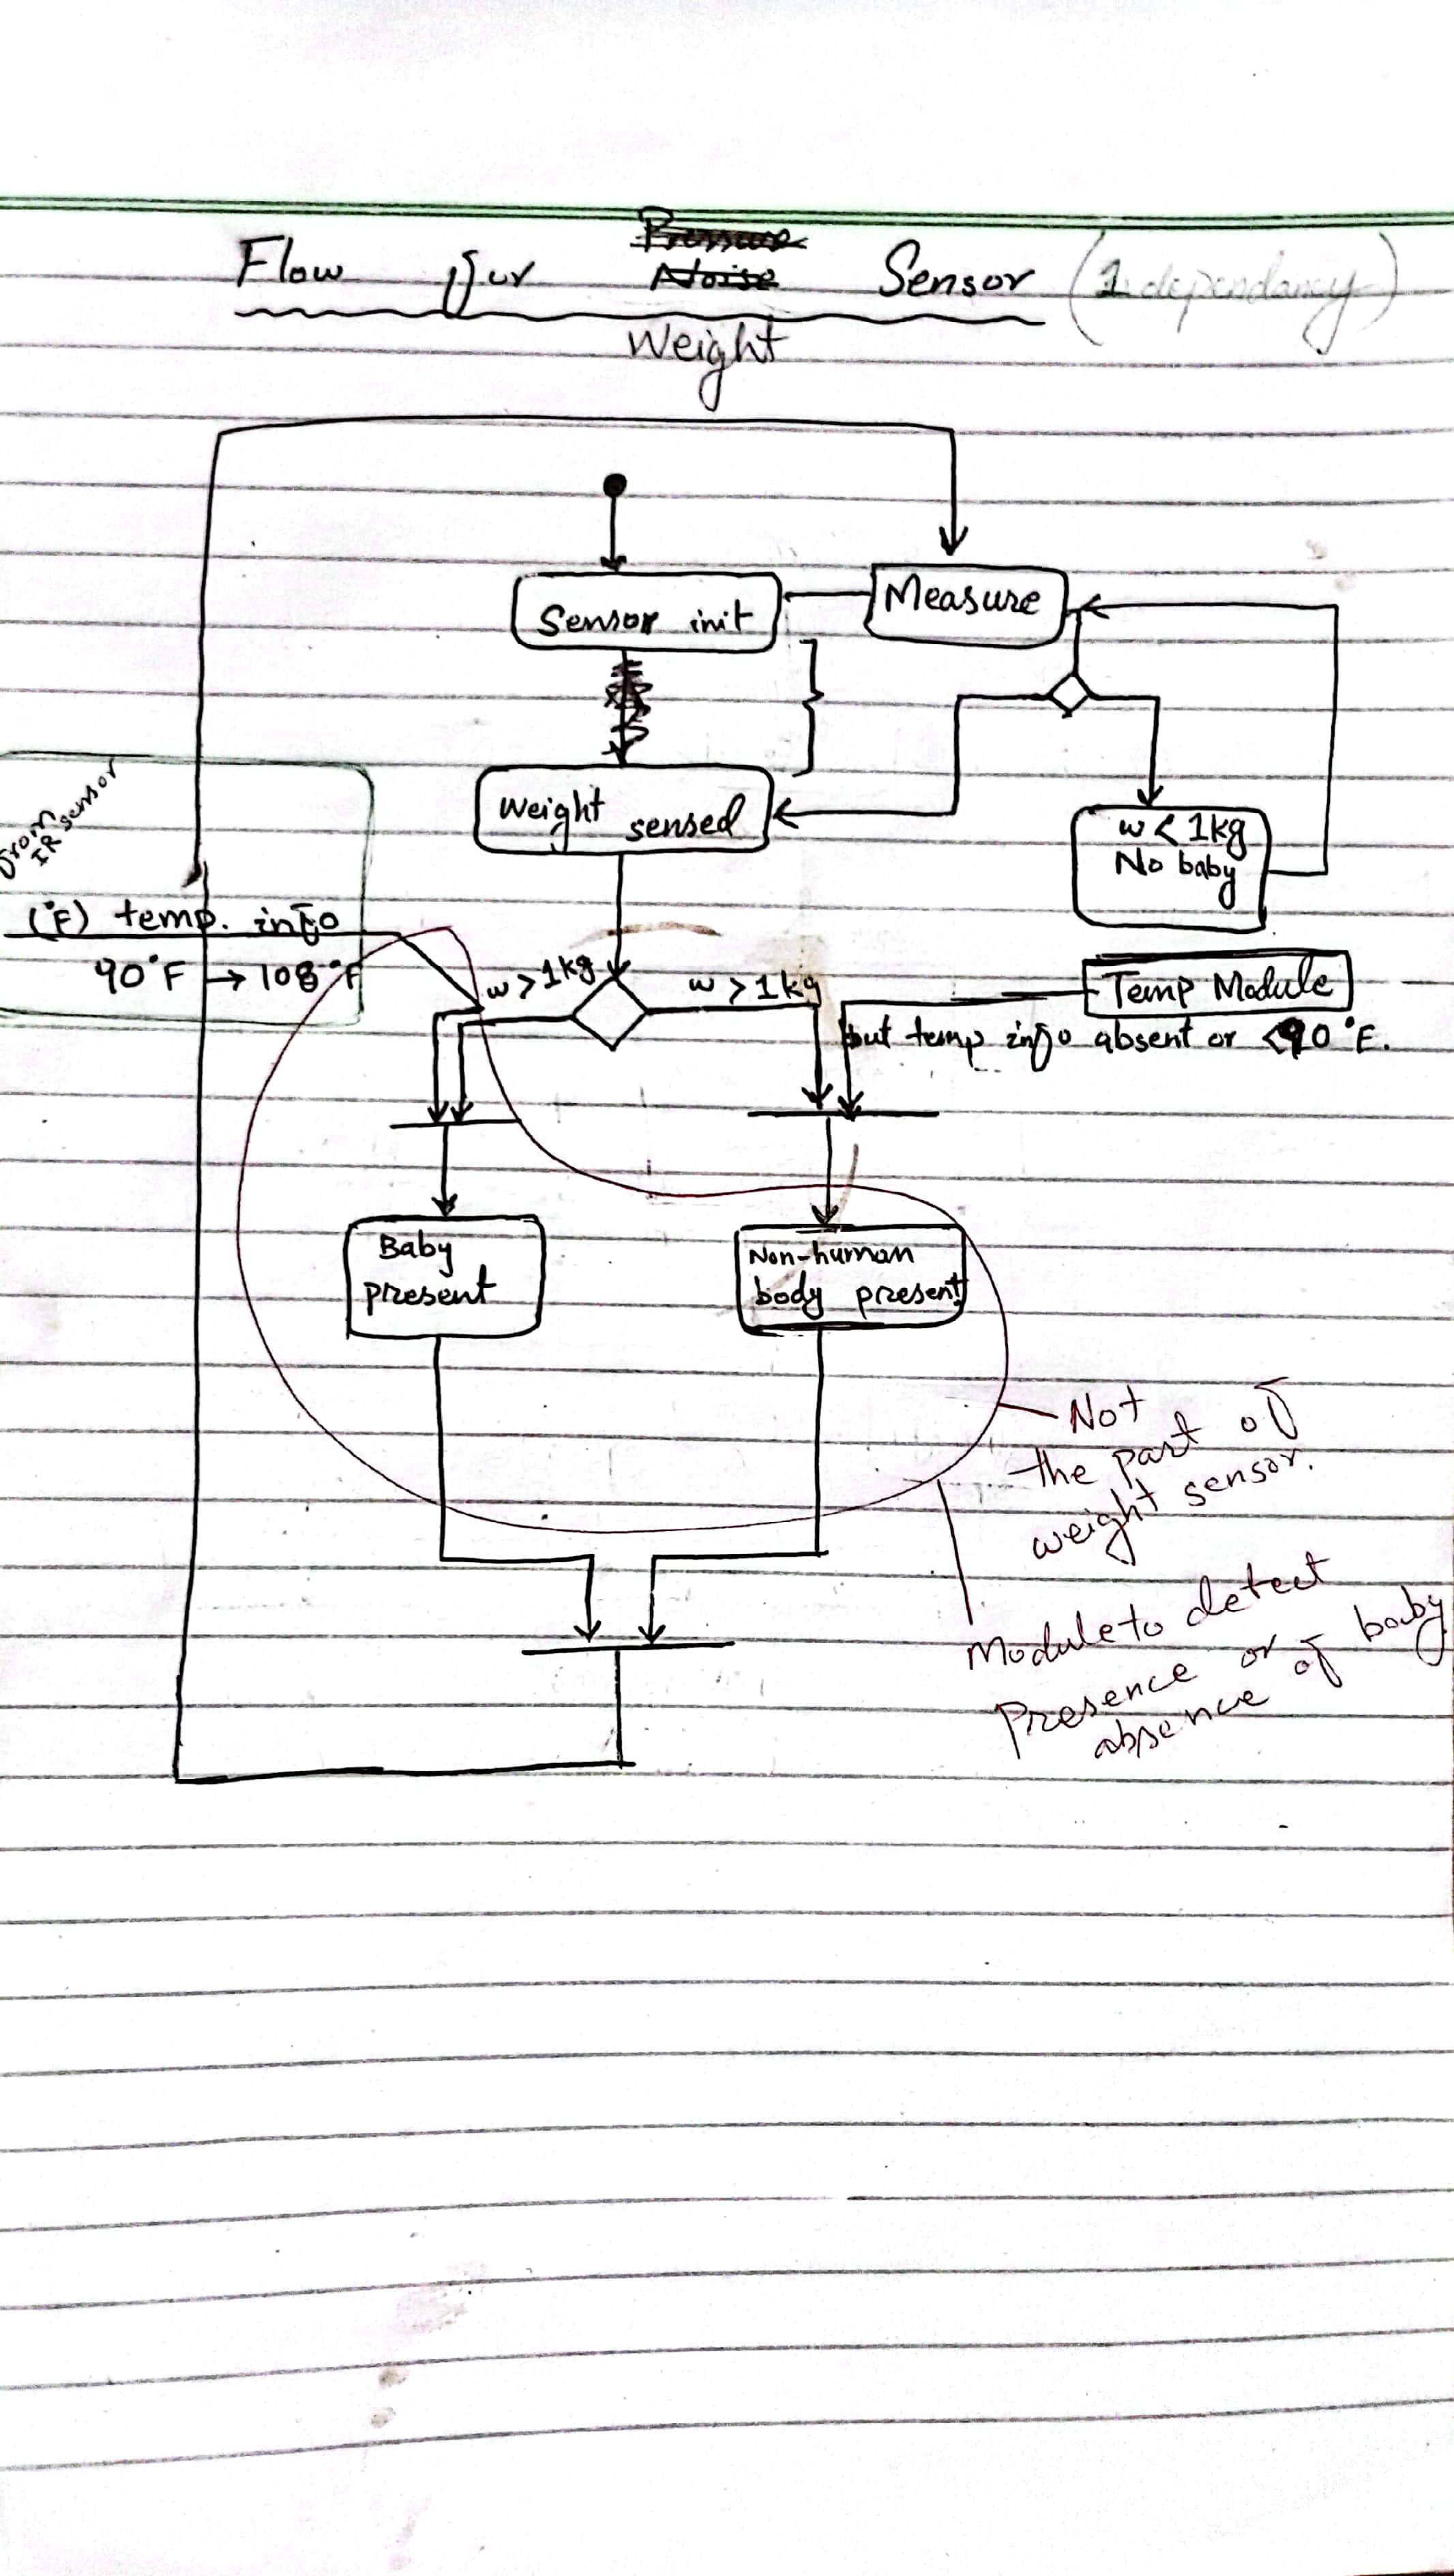 Flow for Pressure Noise Sensor (1 dependancy)
Weight
Sensor init
Measure
Weight sensed
w < 1kg
No baby
from
IR sensor
(°F) temp. info
90°F → 108°F
w > 1kg
w > 1kg
Temp Module
but temp info absent or <90°F.
Baby
present
Non-human
body present
Not
the part of
weight sensor.
Module to detect
Presence or
absence of baby